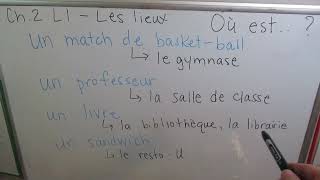 Ch.2 L1 – Les lieux
Où est... ?
Un match de basket-ball
↳ le gymnase
un professeur
↳ la salle de classe
un livre
↳ la bibliothèque, la librairie
un sandwich
↳ le resto-U